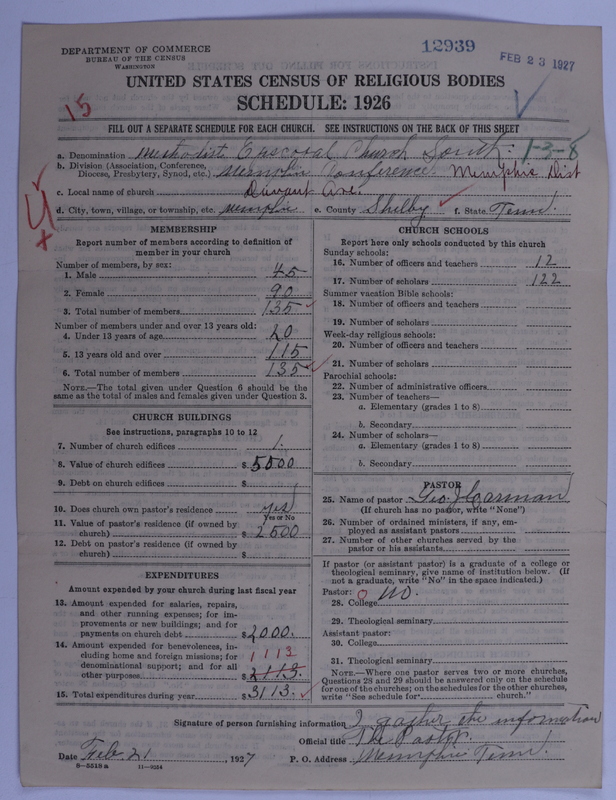 DEPARTMENT OF COMMERCE
BUREAU OF THE CENSUS
WASHINGTON
12939
FEB 23 1927
UNITED STATES CENSUS OF RELIGIOUS BODIES
SCHEDULE: 1926
15
FILL OUT A SEPARATE SCHEDULE FOR EACH CHURCH. SEE INSTRUCTIONS ON THE BACK OF THIS SHEET
a. Denomination Methodist Episcopal Church South. 1-3-8
b. Division (Association, Conference, Diocese, Presbytery, Synod, etc.) Memphis Conference Memphis Dist
c. Local name of church Davant Ave.
d. City, town, village, or township, etc. Memphis e. County Shelby f. State Tenn.
MEMBERSHIP
Report number of members according to definition of
member in your church
Number of members, by sex:
1. Male 45
2. Female 90
3. Total number of members 135
Number of members under and over 13 years old:
4. Under 13 years of age 20
5. 13 years old and over 115
6. Total number of members 135
NOTE.—The total given under Question 6 should be the
same as the total of males and females given under Question 3.
CHURCH BUILDINGS
See instructions, paragraphs 10 to 12
7. Number of church edifices 1
8. Value of church edifices $ 5500
9. Debt on church edifices $
10. Does church own pastor's residence yes
Yes or No
11. Value of pastor's residence (if owned by
church) $ 2500
12. Debt on pastor's residence (if owned by
church) $
EXPENDITURES
Amount expended by your church during last fiscal year
13. Amount expended for salaries, repairs,
and other running expenses; for im-
provements or new buildings; and for
payments on church debt $ 2000.
14. Amount expended for benevolences, in-
cluding home and foreign missions; for 1113
denominational support; and for all
other purposes $ 2113
15. Total expenditures during year $ 3113.
CHURCH SCHOOLS
Report here only schools conducted by this church
Sunday schools:
16. Number of officers and teachers 12
17. Number of scholars 122
Summer vacation Bible schools:
18. Number of officers and teachers
19. Number of scholars
Week-day religious schools:
20. Number of officers and teachers
21. Number of scholars
Parochial schools:
22. Number of administrative officers
23. Number of teachers—
a. Elementary (grades 1 to 8)
b. Secondary
24. Number of scholars—
a. Elementary (grades 1 to 8)
b. Secondary
PASTOR
25. Name of pastor Geo. J. Carman
(If church has no pastor, write "None")
26. Number of ordained ministers, if any, em-
ployed as assistant pastors
27. Number of other churches served by the
pastor or his assistants
If pastor (or assistant pastor) is a graduate of a college or
theological seminary, give name of institution below. (If
not a graduate, write "No" in the space indicated.)
Pastor: 0 No.
28. College
29. Theological seminary
Assistant pastor:
30. College
31. Theological seminary
NOTE.—Where one pastor serves two or more churches,
Questions 28 and 29 should be answered only on the schedule
for one of the churches; on the schedules for the other churches,
write "See schedule for church."
Signature of person furnishing information I gather the information
Official title The Pastor.
Date Feb. 21, 1927 P. O. Address Memphis Tenn.
8—5518 a 11—9254